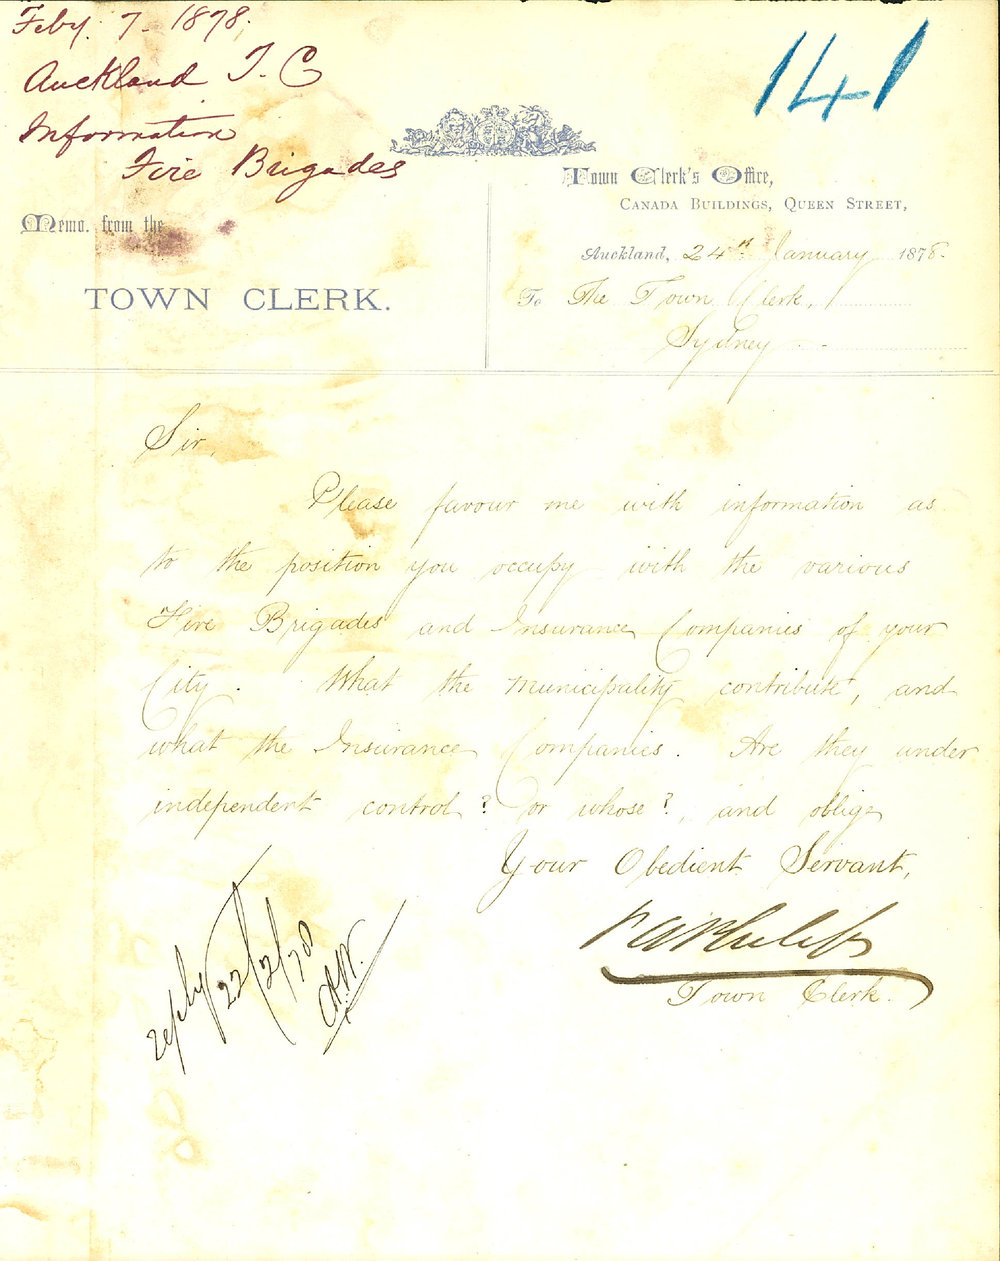 Feby. 7. 1878.
Auckland T. C
Information
Fire Brigades
141
Town Clerk's Office,
CANADA BUILDINGS, QUEEN STREET,
Memo. from the
TOWN CLERK.
Auckland, 24th January 1878.
To The Town Clerk,
Sydney
Sir,
Please favour me with information as
to the position you occupy with the various
Fire Brigades and Insurance Companies of your
City. What the Municipality contribute, and
what the Insurance Companies. Are they under
independent control? or whose?, and oblige
Your Obedient Servant,
P A Philips
Town Clerk.
reply 22/2/78